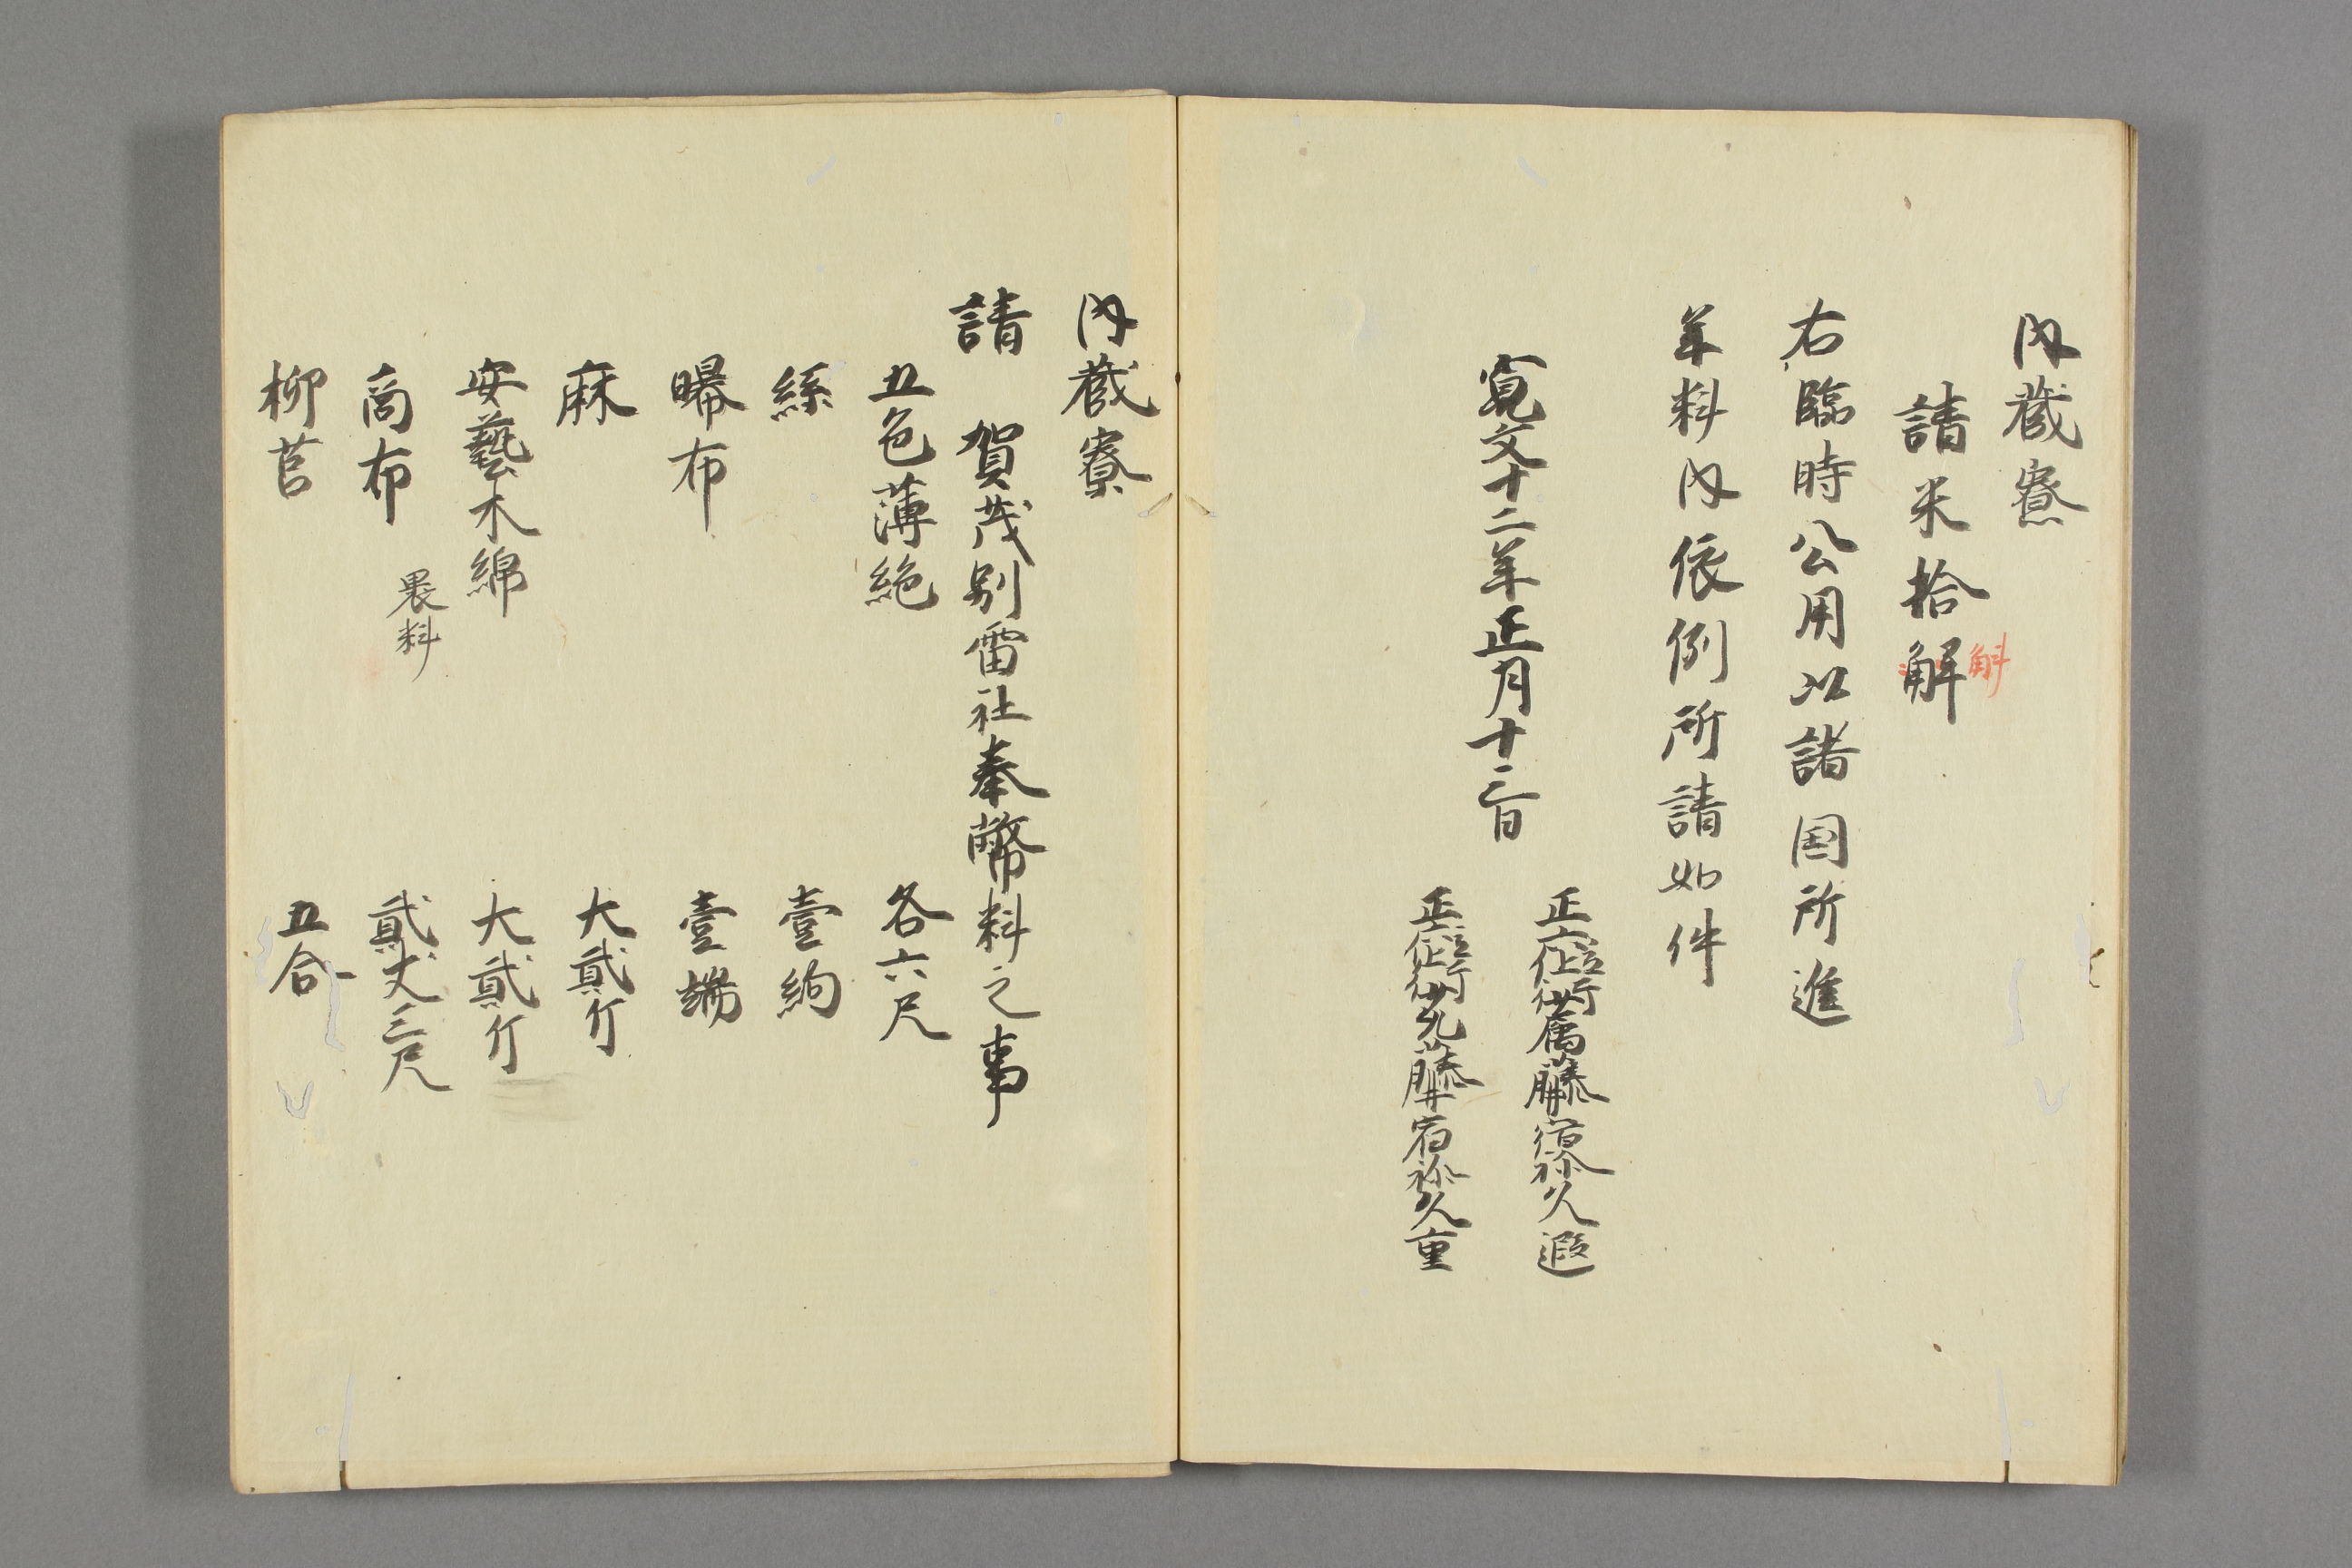 内蔵寮
請米拾解
斛
右臨時公用以諸国所進
年料内依例所請如件
寛文十二年正月十三日
正六位上行属藤原宿祢久遐
正六位上行允藤井宿祢久重
内蔵寮
請 賀茂別雷社奉幣料之事
五色薄絁 各六尺
絲 壹絇
曝布 壹端
麻 大貳斤
安藝木綿 大貳斤
商布 褁料 貳丈三尺
柳筥 五合